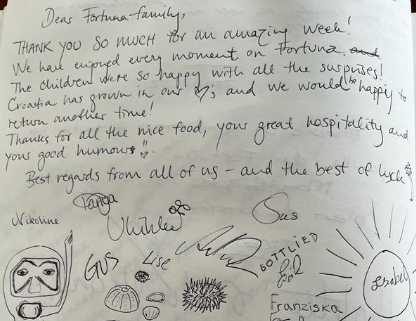 Dear Fortuna-family,
THANK YOU SO MUCH for an amazing week!
We have enjoyed every moment on Fortuna.
The children were so happy with all the suprises!
Croatia has grown in our ♡, and we would be happy to
return another time!
Thanks for all the nice food, your great hospitality and
your good humour!!
Best regards from all of us - and the best of luck!
Nikoline
GUS
Lise
Sus
GOTTLIED
Isabel
Franziska